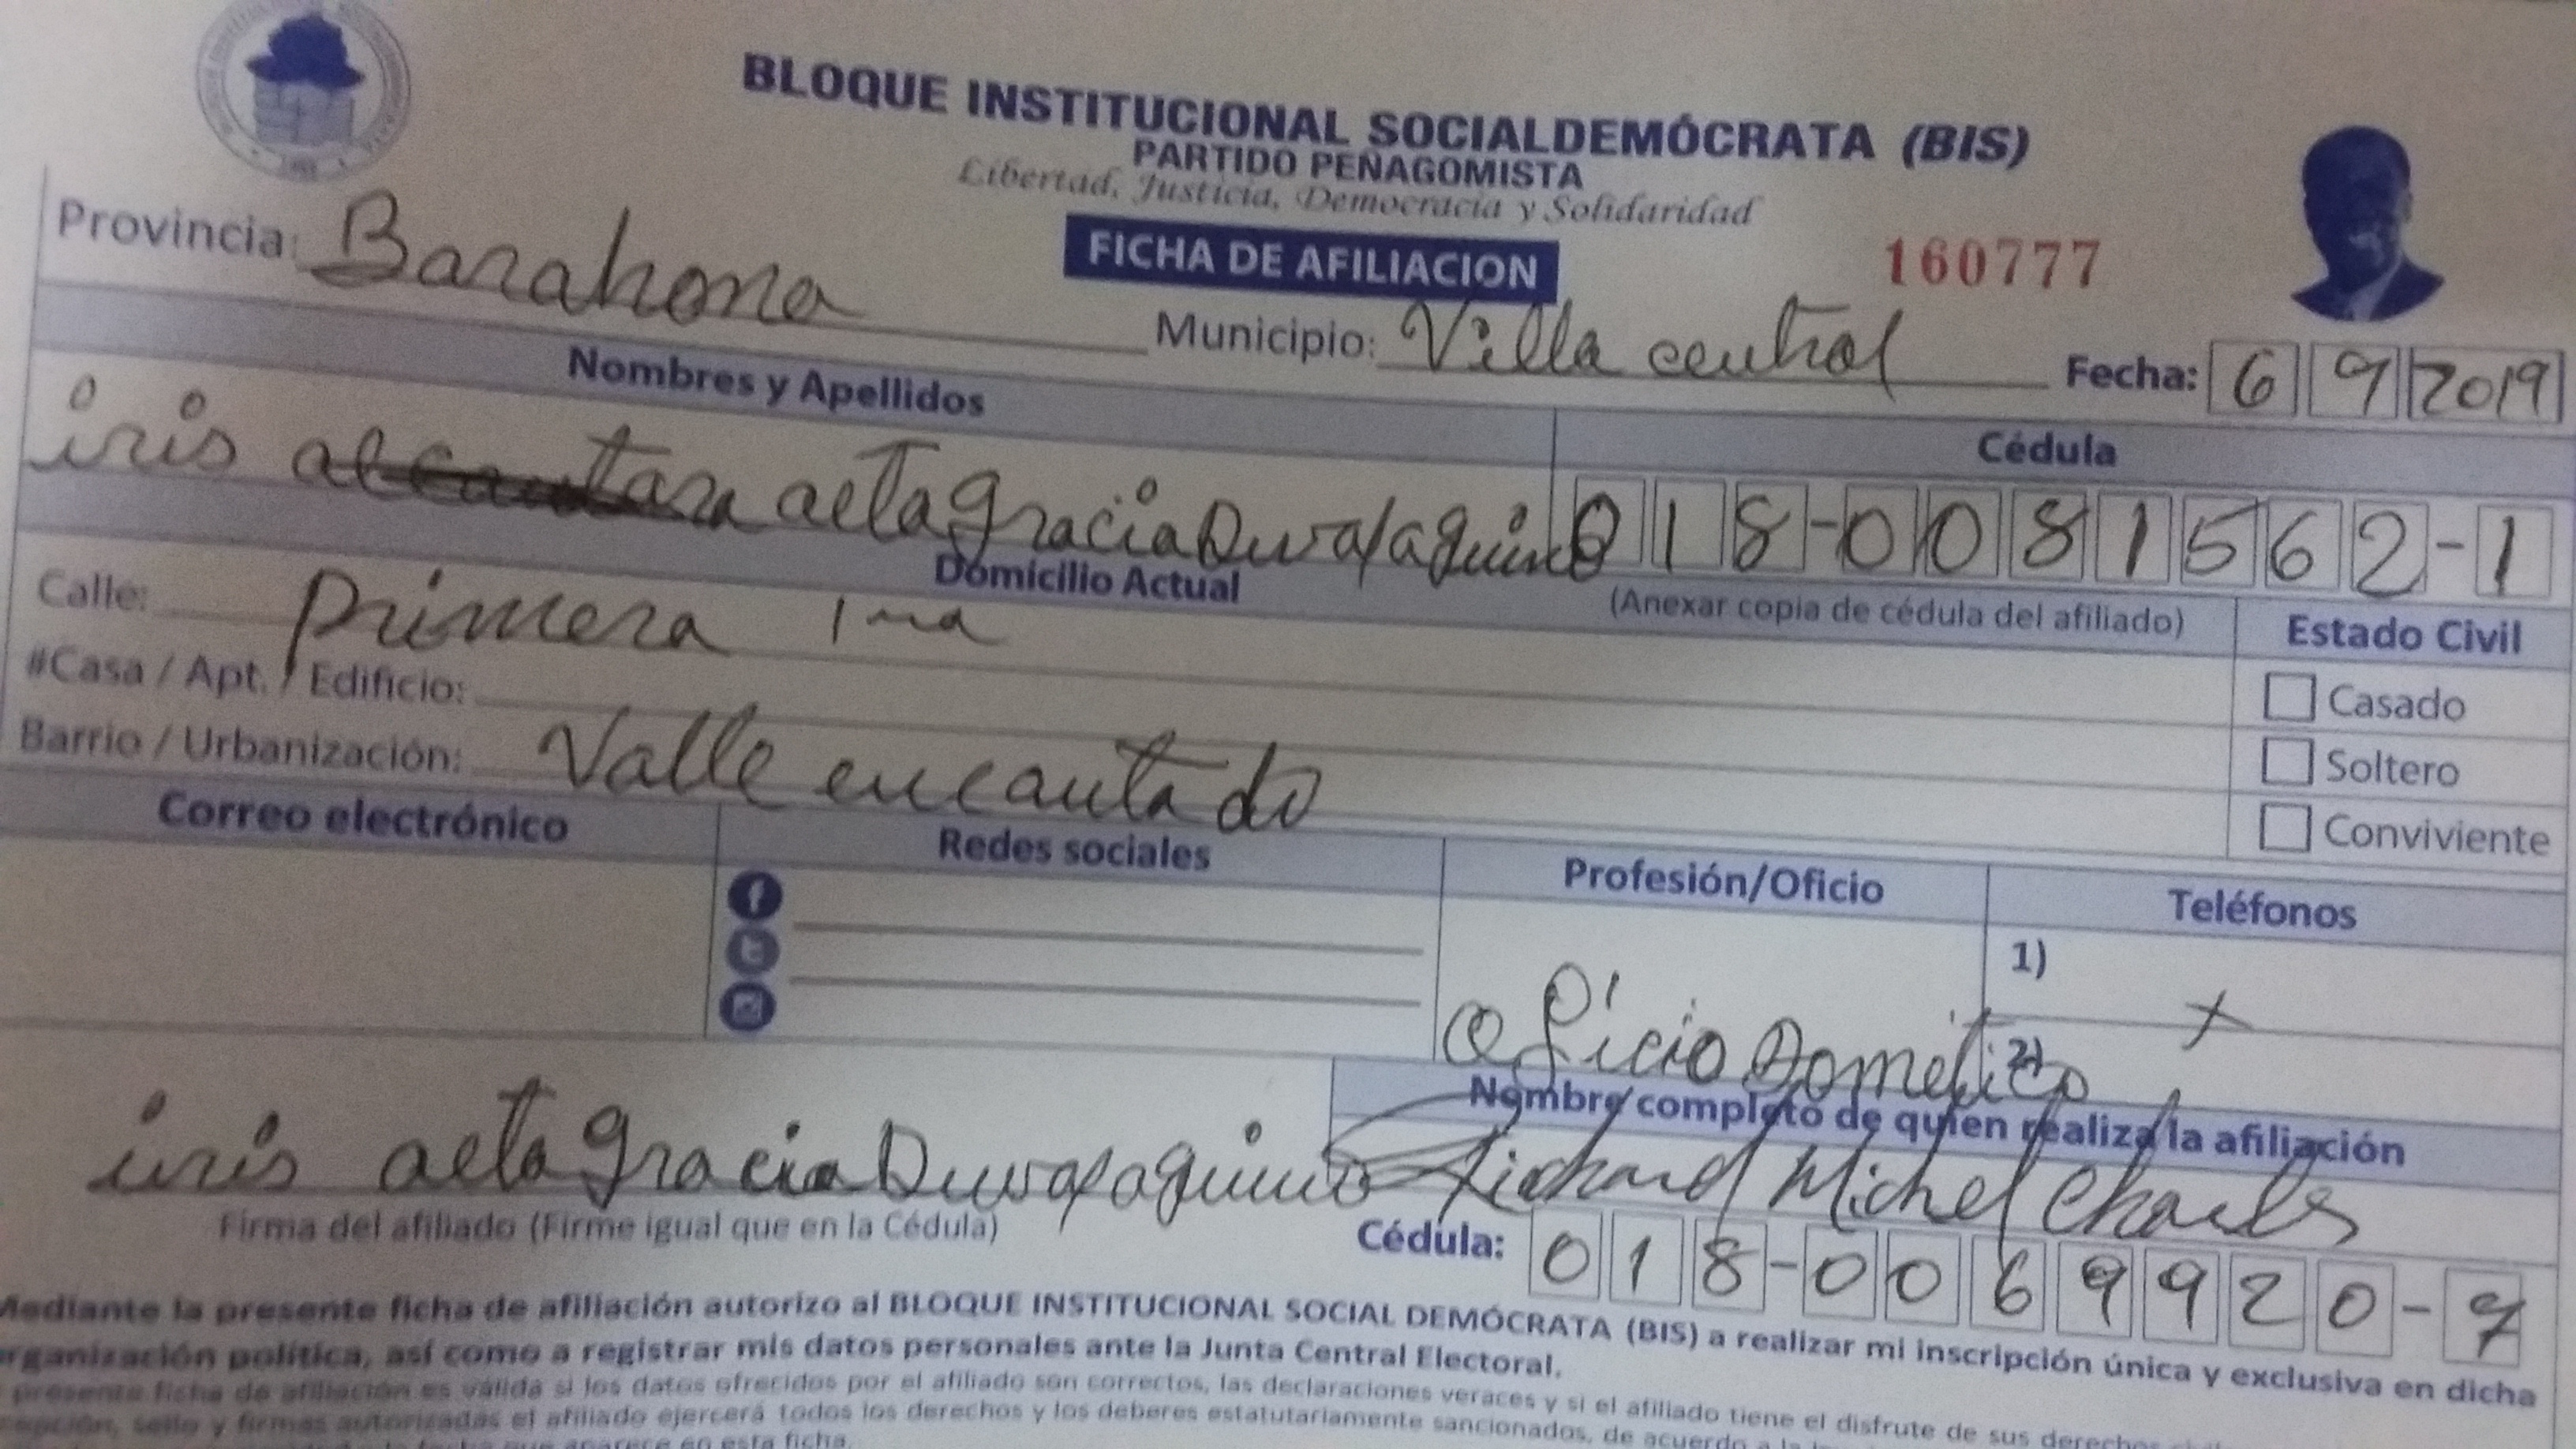 BLOQUE INSTITUCIONAL SOCIALDEMÓCRATA (BIS)
PARTIDO PEÑAGOMISTA
Libertad, Justicia, Democracia y Solidaridad
FICHA DE AFILIACION
160777
Provincia: Barahona
Municipio: Villa central
Fecha: 6 9 2019
Nombres y Apellidos
Cédula
iris altagracia Duval aquino
018-0081562-1
Domicilio Actual
(Anexar copia de cédula del afiliado)
Estado Civil
Calle: primera 1ra
#Casa / Apt. / Edificio:
Casado
Barrio / Urbanización: Valle encantado
Soltero
Conviviente
Correo electrónico
Redes sociales
Profesión/Oficio
Teléfonos
1)
x
2)
oficio Dometico
Nombre completo de quien realiza la afiliación
iris altagracia Duval aquino
Richard Michel Charles
Firma del afiliado (Firme igual que en la Cédula)
Cédula: 018-0069920-7
Mediante la presente ficha de afiliación autorizo al BLOQUE INSTITUCIONAL SOCIAL DEMÓCRATA (BIS) a realizar mi inscripción única y exclusiva en dicha
organización política, así como a registrar mis datos personales ante la Junta Central Electoral.
presente ficha de afiliación es válida si los datos ofrecidos por el afiliado son correctos, las declaraciones veraces y si el afiliado tiene el disfrute de sus derechos
sello y firmas autorizadas el afiliado ejercerá todos los derechos y los deberes estatutariamente sancionados, de acuerdo a
que aparece en esta ficha.